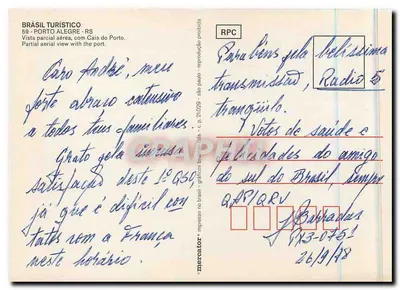 BRASIL TURÍSTICO
59 - PORTO ALEGRE - RS
Vista parcial aérea, com Cais do Porto.
Partial aerial view with the port.
Caro André, meu
forte abraço extensivo
a todos teus familiares.
Grato pela imensa
satisfação deste 1º QSO,
já que é difícil con
tatos com a França
neste horário.
"mercator"
RPC
Parabéns pela belíssima
transmissão, Radio 5
tranqüilo.
Votos de saúde e
felicidades do amigo
do sul do Brasil, sempre
QAP/QRV
J Barradas
PX3-0751
26/9/78